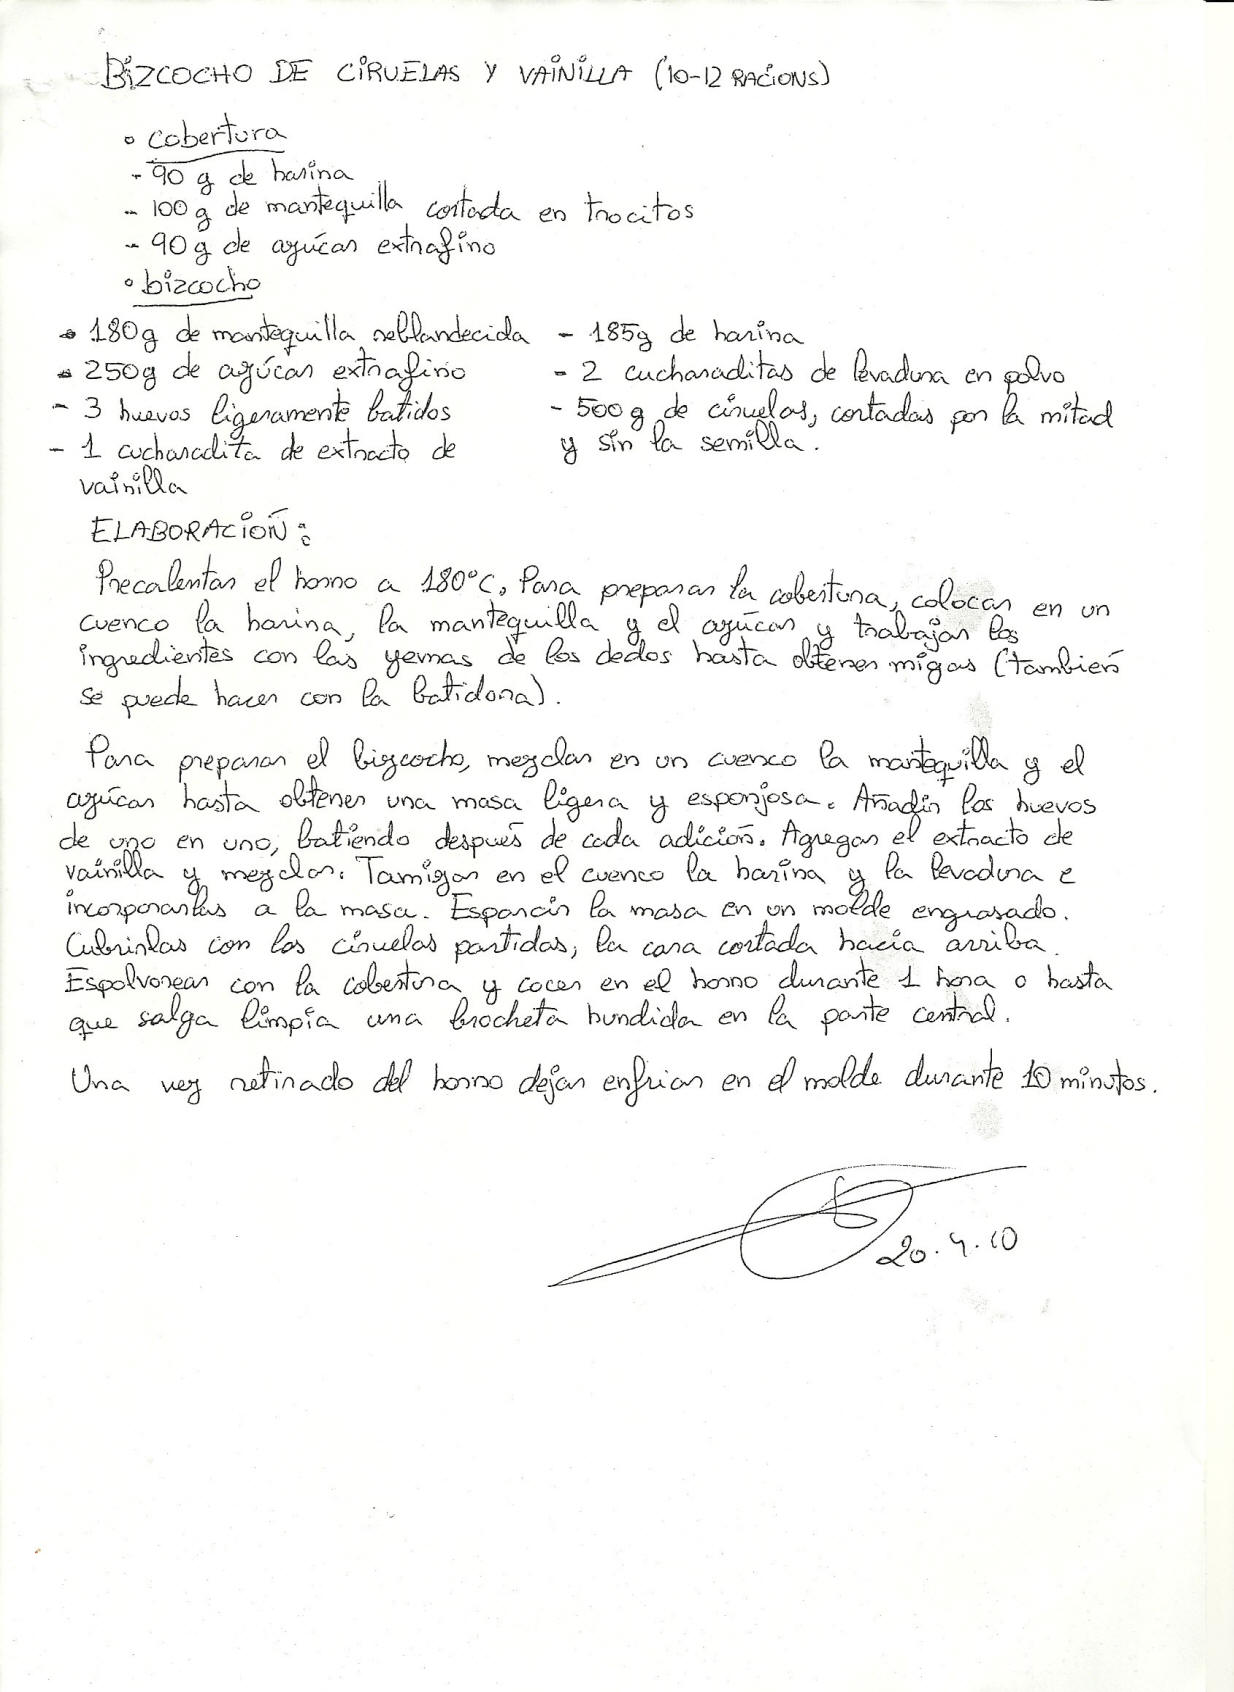 BIZCOCHO DE CIRUELAS Y VAINILLA (10-12 RACIONS)
• cobertura
- 90 g de harina
- 100 g de mantequilla cortada en trocitos
- 90 g de azúcar extrafino
• bizcocho
- 180g de mantequilla reblandecida
- 250g de azúcar extrafino
- 3 huevos ligeramente batidos
- 1 cucharadita de extracto de
vainilla
- 185g de harina
- 2 cucharaditas de levadura en polvo
- 500 g de ciruelas, cortadas por la mitad
y sin la semilla.
ELABORACIÓN:
Precalentar el horno a 180°C. Para preparar la cobertura, colocar en un
cuenco la harina, la mantequilla y el azúcar y trabajar los
ingredientes con las yemas de los dedos hasta obtener migas (también
se puede hacer con la batidora).
Para preparar el bizcocho, mezclar en un cuenco la mantequilla y el
azúcar hasta obtener una masa ligera y esponjosa. Añadir los huevos
de uno en uno, batiendo después de cada adición. Agregar el extracto de
vainilla y mezclar. Tamizar en el cuenco la harina y la levadura e
incorporarlas a la masa. Esparcir la masa en un molde engrasado.
Cubrirlas con las ciruelas partidas, la cara cortada hacia arriba.
Espolvorear con la cobertura y cocer en el horno durante 1 hora o hasta
que salga limpia una brocheta hundida en la parte central.
Una vez retirado del horno dejar enfriar en el molde durante 10 minutos.
20.4.10